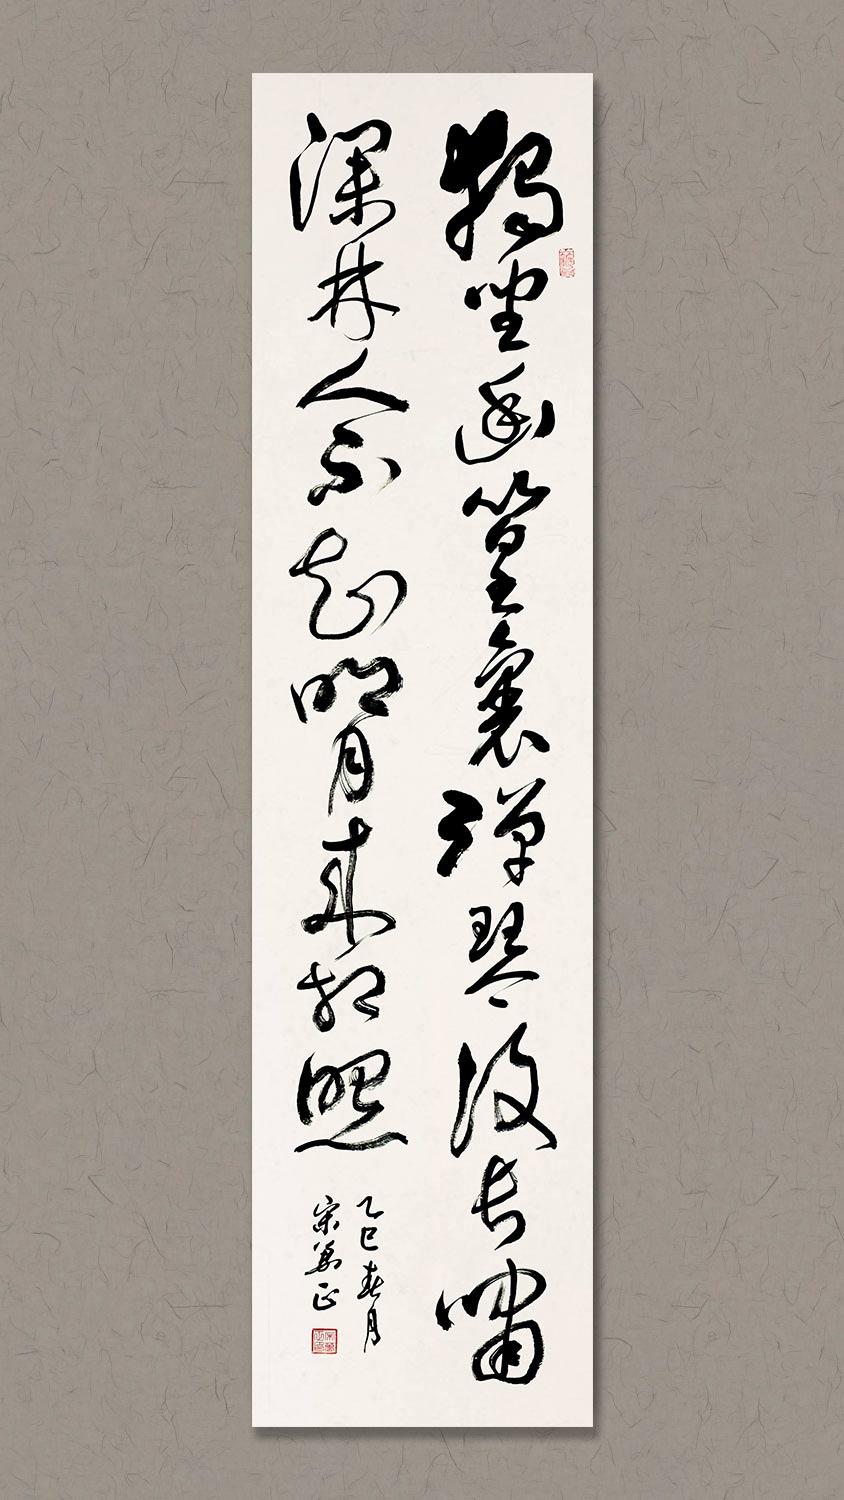 獨坐幽篁裏彈琴復長嘯
深林人不知明月來相照
乙巳春月
宋萬正